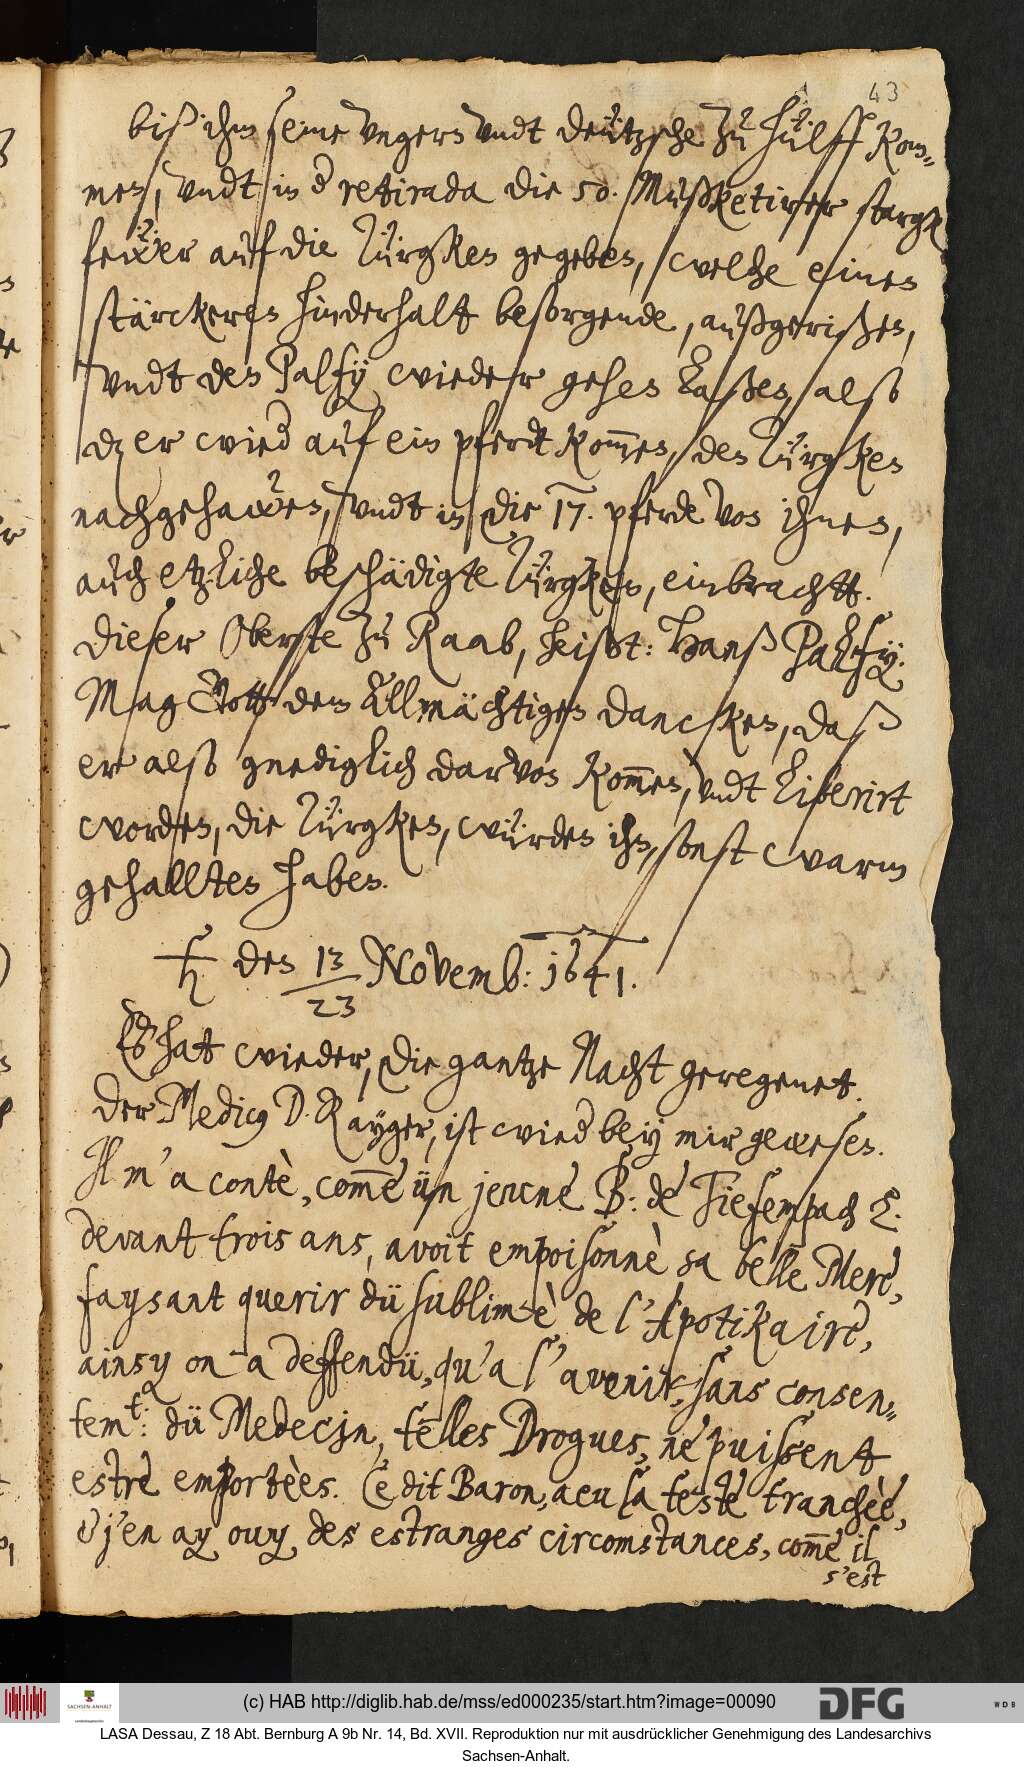 43
biß ihm seine Vngern vndt deützsche zu hülff kom-
men, vndt in d retirada die 50. Mußketirer starg
fewer auf die Türgken gegeben, welche eines
stärckeren hinderhalt besorgende, außgerißen,
vndt den Palfÿ wieder gehen laßen, also
dz er wied auf ein pferdt kom̄en, den Türgken
nachgehawen, vndt in die 17. pferde von ihnen,
auch etzliche beschädigte Türgken, einbrachtt.
Dieser Oberste zu Raab, heißt: Hanß Palfÿ.
Mag Gott dem Allmächtigen dancken, daß
er also gnediglich darvon kom̄en, vndt liberirt
worden, die Türgken, würden ihn, sonst warm
gehallten haben.
♄ den 13/23 Novemb: 1641.
Es hat wieder, die gantze Nacht geregenet.
Der Medicus D. Rayger, ist wied beÿ mir gewesen.
Il m'a contè, com̄e ün jeune B: de Tiefempach L.
devant trois ans, avoit empoisonnè sa belle Mere,
faysant querir dü sublimè de l'Apotikaire,
ainsy on a deffendü, qu'a l'avenir, sans consen-
temt: dü Medecin, telles Drogues, ne puissent
estre emportèes. Ce dit Baron, a eu la teste tranchèe,
& j'en ay ouy des estranges circomstances, com̄e il
s'est
(c) HAB http://diglib.hab.de/mss/ed000235/start.htm?image=00090
SACHSEN-ANHALT
DFG
WDB
LASA Dessau, Z 18 Abt. Bernburg A 9b Nr. 14, Bd. XVII. Reproduktion nur mit ausdrücklicher Genehmigung des Landesarchivs
Sachsen-Anhalt.